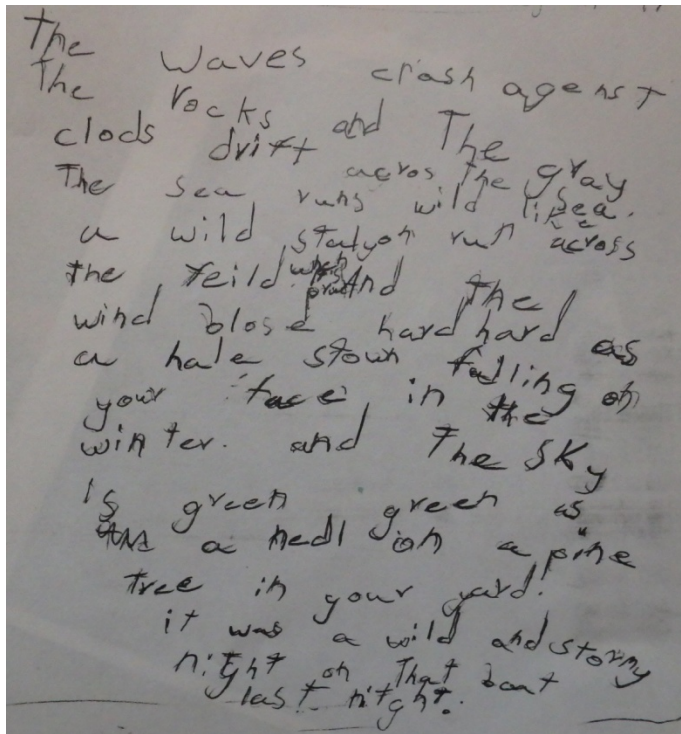 The
The waves crash agenst
rocks and The
clods drift acros the gray
sea.
The sea runs wild like
a wild stalyon run across
the feild when And the
wind blose hard hard as
a hale stown falling on
your face in the
winter. and The sky
is green green as
a nedl on a pine
tree in your yard!
it was a wild and stormy
night on That boat
last nitght.